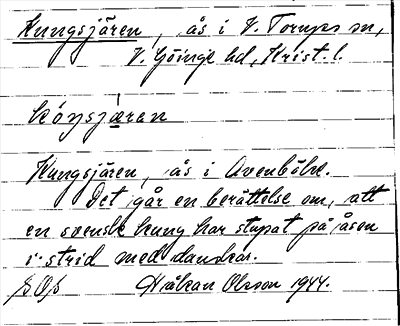 Kungsjären, ås i V. Torups sn,
V. Göinge hd, Krist. l.
kóŋsjæ̀ren
Kungsjären, ås i Avenböke.
Det går en berättelse om, att
en svensk kung har stupat på åsen
i strid med danskar.
Håkan Olsson 1944.